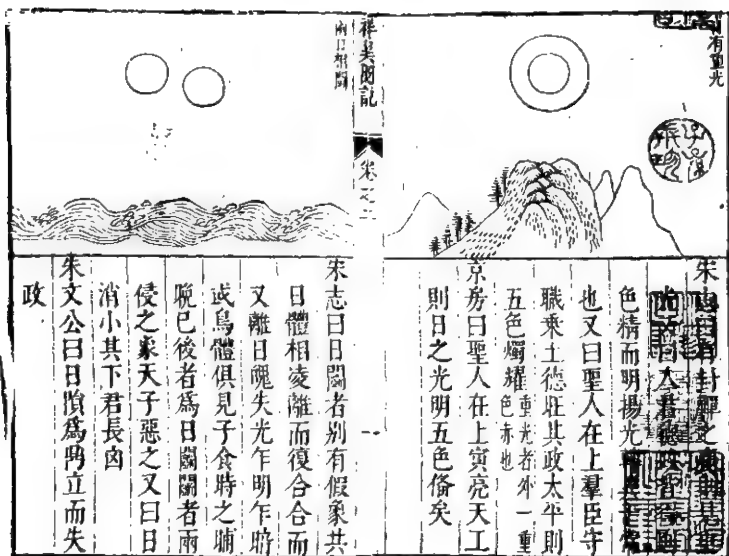 日有重光
宋志曰有封
尚
色精而明揚光
也又曰聖人在上羣臣守
職乗土德旺其政太平則
五色燭耀重光者外一重色赤也
京房曰聖人在上寅亮天工
則日之光明五色俻矣
祥異圖記
卷之二
一
兩日相鬪
宋志曰日鬪者别有假象共
日體相凌離而復合合而
又離日魄失光乍明乍暗
或烏體俱見子食時之晡
晚巳後者爲日鬪鬪者兩
侵之象天子惡之又曰日
消小其下君長凶
朱文公曰日隕爲兩立而失
政